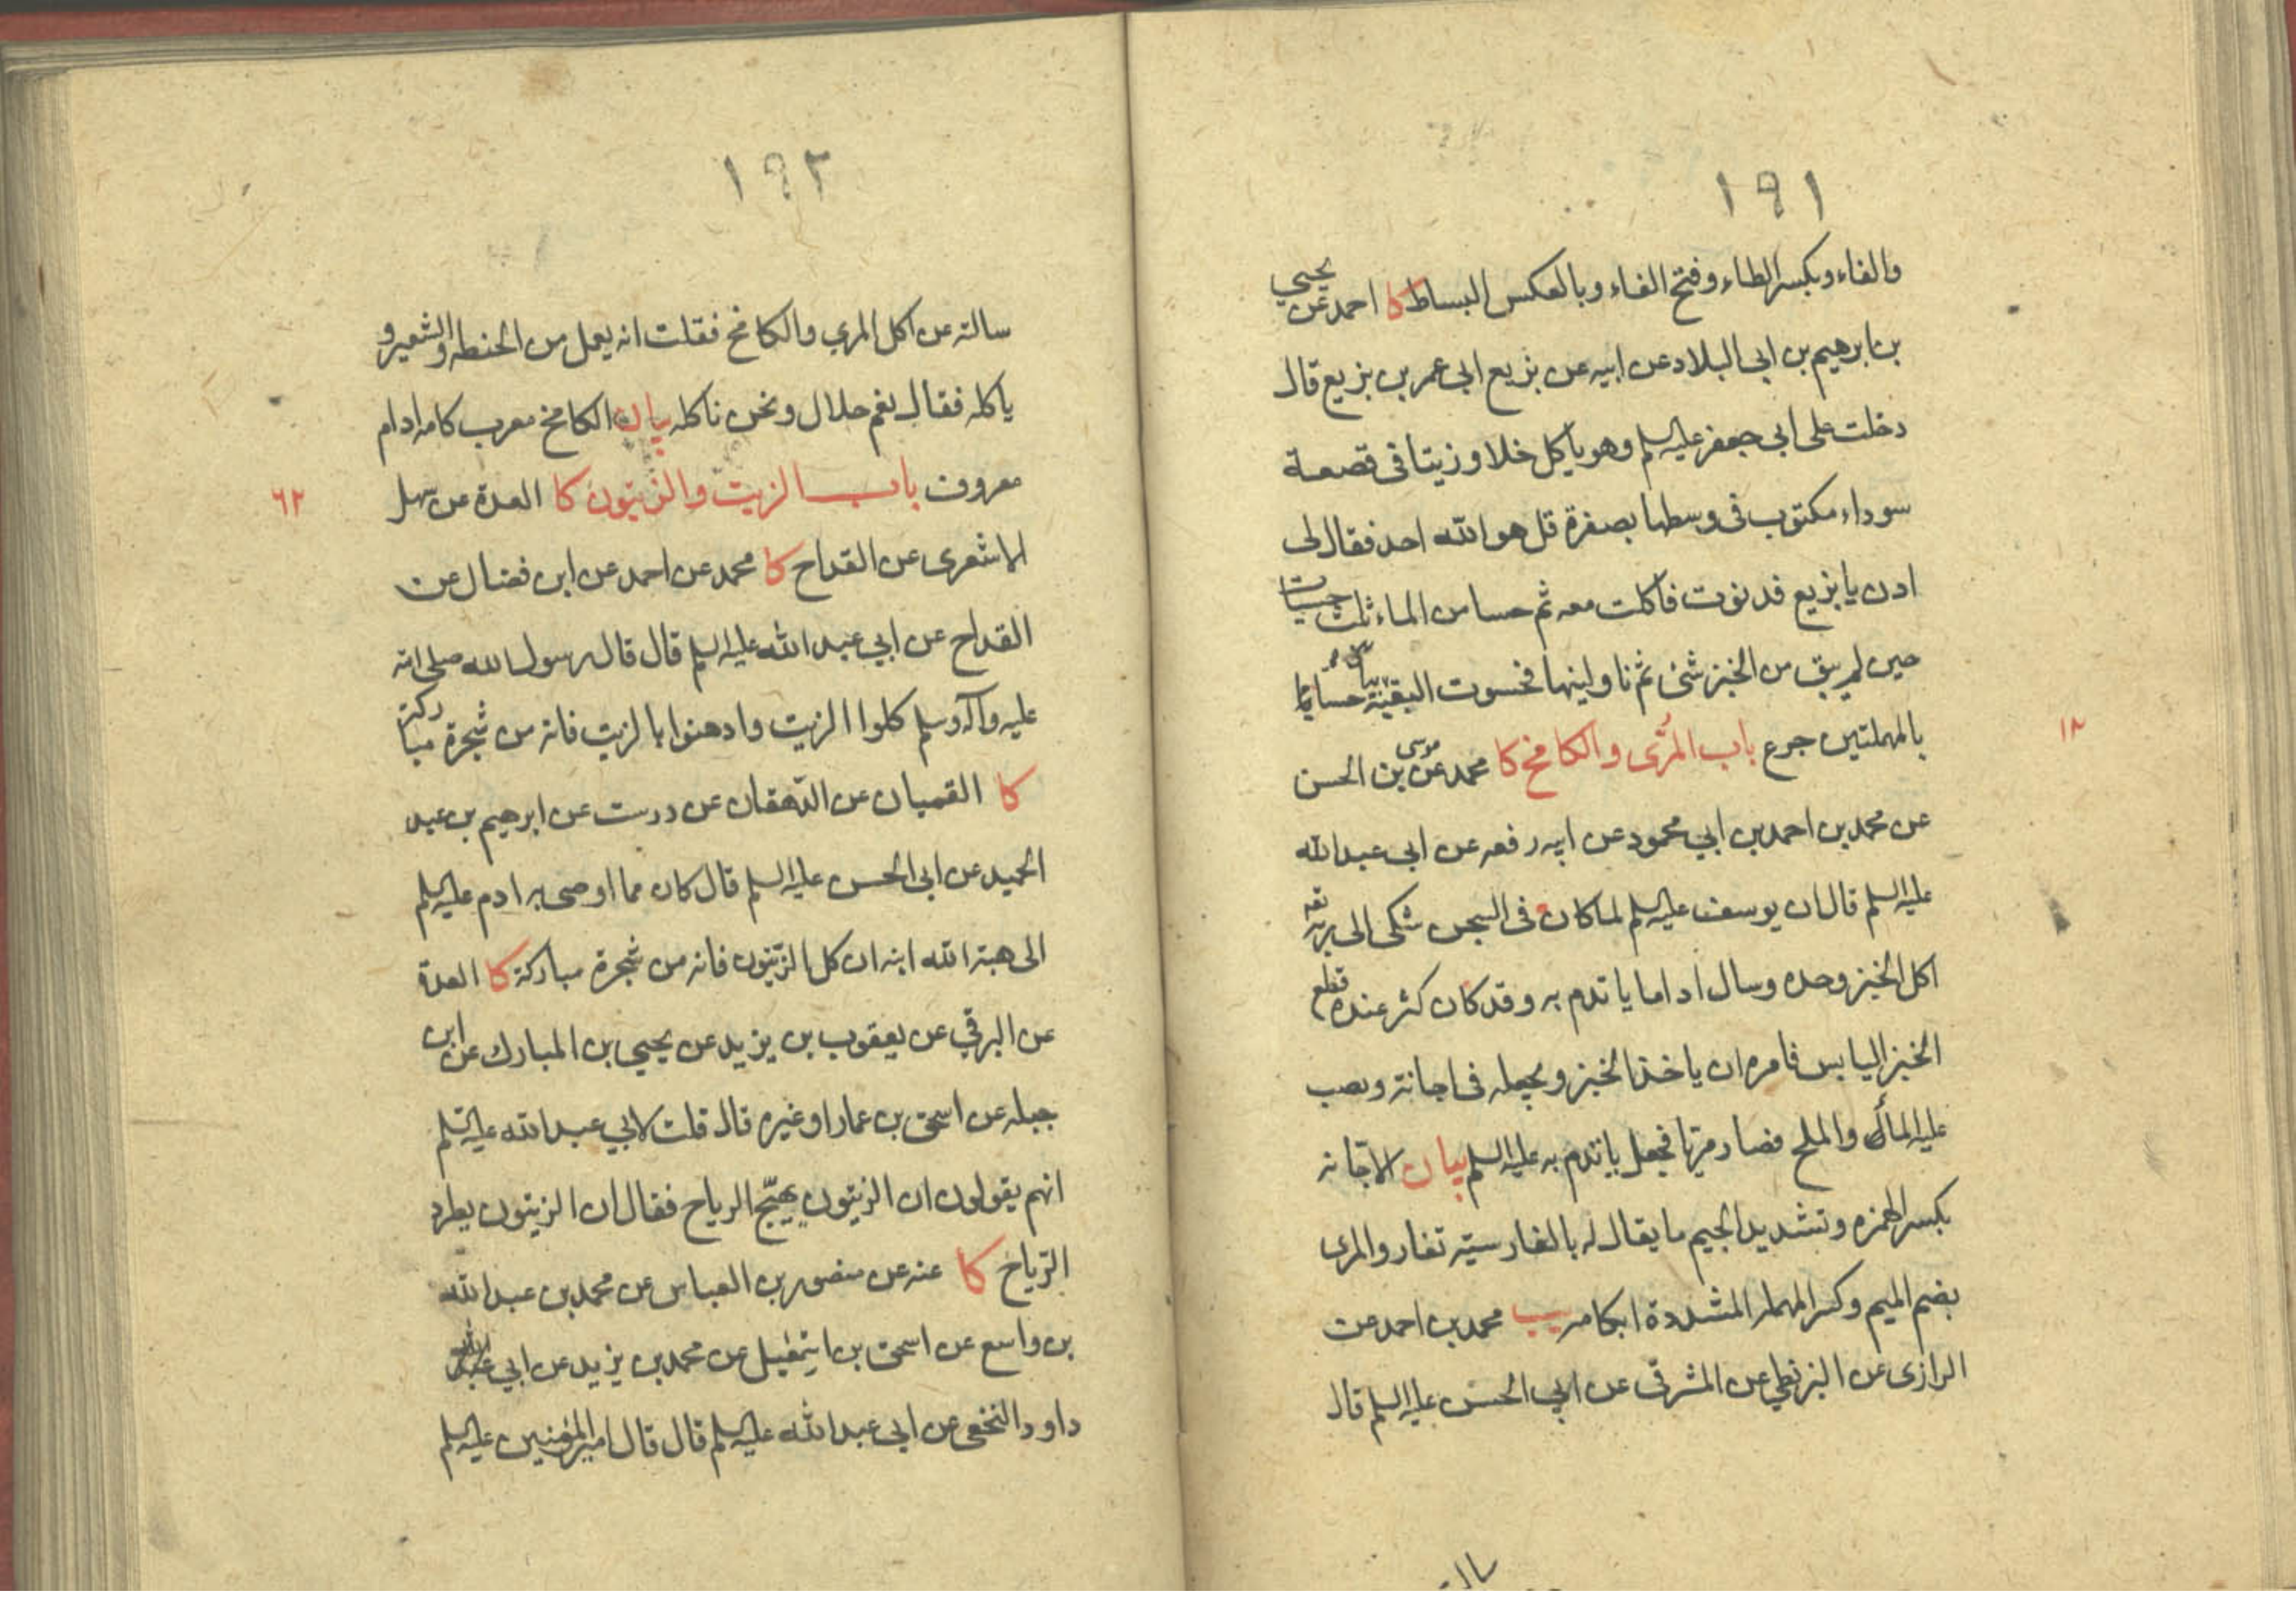 ١٩١
والفاء وبكسر الطاء وفتح الفاء وبالعكس البساط كا احمد عن يحيي
بن ابرهيم بن ابى البلاد عن ابيه عن بزيع ابى عمر بن بزيع قال
دخلت على ابى جعفر عليه السلم وهو ياكل خلا وزيتا فى قصعة
سوداء مكتوب فى وسطها بصفرة قل هو الله احد فقال لى
ادن يا بزيع فدنوت فاكلت معه ثم حسا من الماء ثلث حسيات
حين لم يبق من الخبز شئ ثم ناولينها فحسوت البقية بيان حسا
بالمهملتين جرع باب المرّى والكامخ كا محمد عن موسى بن الحسن
عن محمد بن احمد بن ابي محمود عن ابيه رفعه عن ابى عبد الله
عليه السلم قال ان يوسف عليه السلم لما كان فى السجن شكى الى ربه
اكل الخبز وحده وسال اداما ياتدم به وقد كان كثر عنده قطع
الخبز اليابس فامره ان ياخذ الخبز ويجعله فى اجانة ويصب
عليه الماء والملح فصار مريّا فجعل ياتدم به عليه السلم بيان الاجانه
بكسر الهمزه وتشديد الجيم ما يقال له بالفارسيّه تغار والمرى
بضم الميم وكسر المهمله المشددة ابكامه يب محمد بن احمد عن
الرازى عن البزنطي عن المشرقى عن ابي الحسن عليه السلم قال
سالته
١٨
١٩٢
سالته عن اكل المري والكامخ فقلت انه يعمل من الحنطه والشعير و
ياكله فقال نعم حلال ونحن ناكله بيان الكامخ معرب كامه ادام
معروف باب الزيت والزيتون كا العدة عن سهل
الاشعرى عن القداح كا محمد عن احمد عن ابن فضال عن
القداح عن ابي عبد الله عليه السلم قال قال رسول الله صلى الله
عليه وآله وسلم كلوا الزيت وادهنوا بالزيت فانه من شجرة مباركة
كا القميان عن الدهقان عن درست عن ابرهيم بن عبد
الحميد عن ابى الحسن عليه السلم قال كان مما اوصى به ادم عليه السلم
الى هبة الله ابنه ان كل الزيتون فانه من شجرة مباركة كا العدة
عن البرقي عن يعقوب بن يزيد عن يحيي بن المبارك عن ابن
جبله عن اسحق بن عمار او غيره قال قلت لابي عبد الله عليه السلم
انهم يقولون ان الزيتون يهيّج الرياح فقال ان الزيتون يطرد
الرّياح كا عنه عن منصور بن العباس عن محمد بن عبد الله
بن واسع عن اسحق بن اسمعيل عن محمد بن يزيد عن ابي
داود النخعى عن ابى عبد الله عليه السلم قال قال امير المؤمنين عليه السلم
٦٢